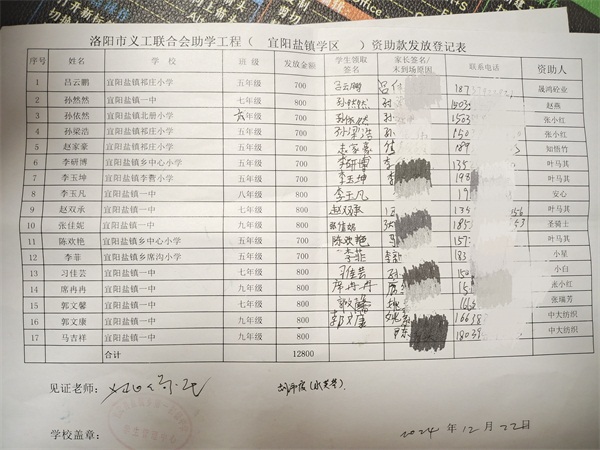 洛阳市义工联合会助学工程（ 宜阳盐镇学区 ）资助款发放登记表
序号 姓名 学校 班级 发放金额 学生领取签名 家长签名/未到场原因 联系电话 资助人
1 吕云鹏 宜阳盐镇祁庄小学 五年级 700 吕云鹏 吕 187 晟鸿砼业
2 孙然然 宜阳盐镇一中 七年级 800 孙然然 孙 1503 赵燕
3 孙依然 宜阳盐镇北册小学 六年级 700 孙依然 孙 1503 张小红
4 孙梁浩 宜阳盐镇祁庄小学 五年级 700 孙梁浩 孙 150 张小红
5 赵家豪 宜阳盐镇祁庄小学 五年级 700 赵家豪 189 知悟竹
6 李研博 宜阳盐镇乡中心小学 五年级 700 李研博 李 135 叶马其
7 李玉坤 宜阳盐镇李沟小学 五年级 700 李玉坤 李 198 叶马其
8 李玉凡 宜阳盐镇一中 八年级 800 李玉凡 19 安心
9 赵双承 宜阳盐镇一中 七年级 800 赵双承 134 56 叶马其
10 张佳妮 宜阳盐镇一中 九年级 800 张佳妮 张 185 53 圣骑士
11 陈欢艳 宜阳盐镇乡中心小学 五年级 700 陈欢艳 马 157 叶马其
12 李菲 宜阳盐镇乡席沟小学 五年级 700 李菲 李 183 小星
13 习佳芸 宜阳盐镇一中 七年级 800 习佳芸 孙 150 小白
14 席冉冉 宜阳盐镇一中 九年级 800 席冉冉 席 15 张小红
15 郭文馨 宜阳盐镇一中 七年级 800 郭文馨 魏 166 张瑞芳
16 郭文康 宜阳盐镇一中 九年级 800 郭文康 魏 16638 中大纺织
17 马吉祥 宜阳盐镇一中 九年级 800 18039 中大纺织
合计 12800
见证老师：
学校盖章： 2024 年 12 月 22日